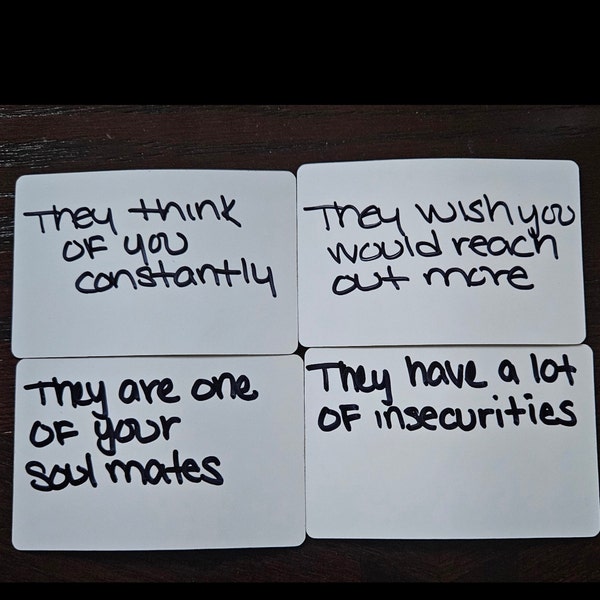 They think
OF you
constantly
They wish you
would reach
out more
They are one
OF your
soul mates
They have a lot
OF insecurities